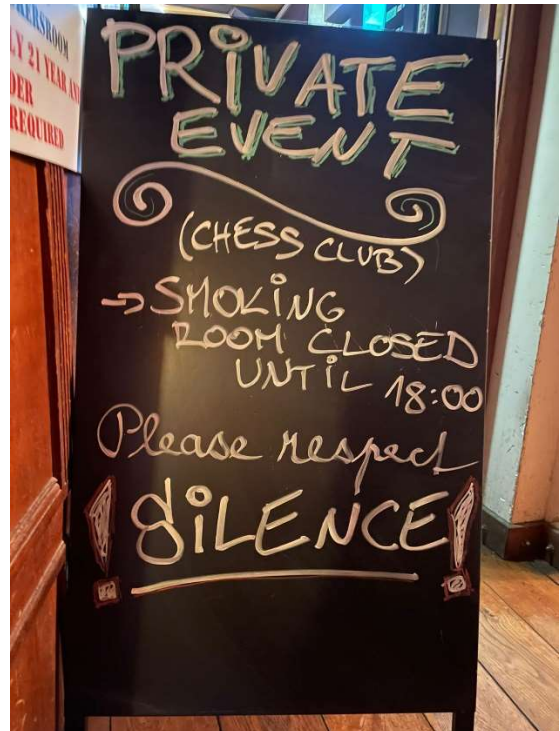 LY 21 YEAR AN
DER
REQUIRED
PRiVATE
EVENT
(CHESS CLUB)
→ SMOKiNG
ROOM CLOSED
UNTiL 18:00
Please respect
! SiLENCE !